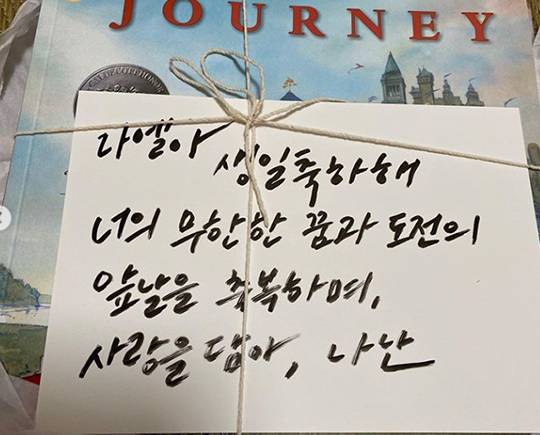 JOURNEY
라엘아
생일축하해
너의 무한한 꿈과 도전의
앞날을 축복하며,
사랑을 담아, 나난